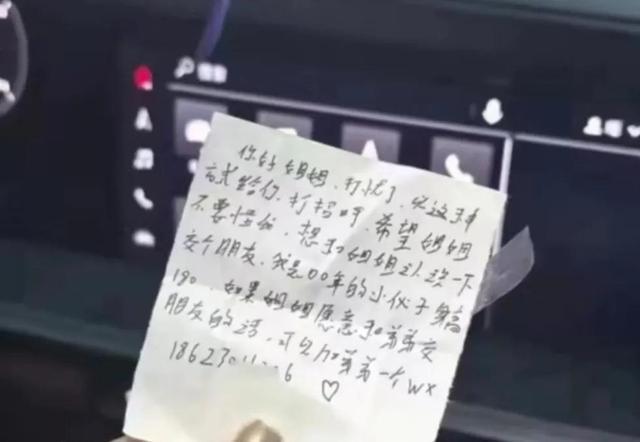 搜索
你好 姐姐、打扰了、以这种
方式给你、打招呼、希望姐姐
不要怪、想和姐姐认识一下
交个朋友、我是00年的小伙子身高
180 如果姐姐愿意和弟弟交
朋友的话、可以加弟弟一个WX
18623 6 ♡